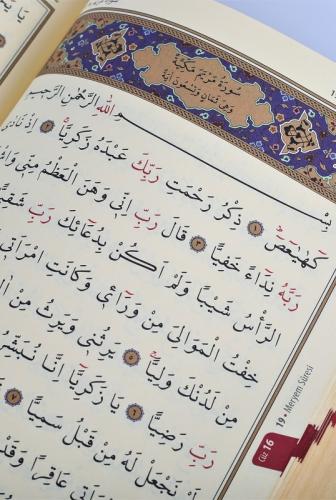 سُورَةُ مَرْيَمَ مَكِّيَّةٌ
وَهِيَ ثَمَانٍ وَتِسْعُونَ اٰيَةً
بِسْــــمِ اللّٰهِ الرَّحْمٰنِ الرَّحٖيمِ
كٓهٰيٰعٓصٓ ۝١ ذِكْرُ رَحْمَتِ رَبِّكَ عَبْدَهُ زَكَرِيَّا ۝٢ اِذْ نَادٰى
رَبَّهُ نِدَٓاءً خَفِيًّا ۝٣ قَالَ رَبِّ اِنّٖي وَهَنَ الْعَظْمُ مِنّٖي
الرَّأْسُ شَيْبًا وَلَمْ اَكُنْ بِدُعَٓائِكَ رَبِّ شَقِيًّا
خِفْتُ الْمَوَالِيَ مِنْ وَرَٓاءٖي وَكَانَتِ امْرَاَتٖي
مِنْ لَدُنْكَ وَلِيًّا ۝٥ يَرِثُنٖي وَيَرِثُ مِنْ
رَبِّ رَضِيًّا ۝٦ يَا زَكَرِيَّٓا اِنَّا نُبَشِّرُكَ
لَمْ نَجْعَلْ لَهُ مِنْ قَبْلُ سَمِيًّا ۝٧
عَاقِرًا وَقَدْ
Cüz 16
19 • Meryem Sûresi